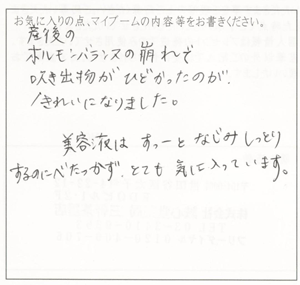 お気に入りの点、マイブームの内容等をお書きください。
産後の
ホルモンバランスの崩れで
吹き出物がひどかったのが、
きれいになりました。
美容液は すっーと なじみしっとり
するのにべたっかず、とても 気に入っています。